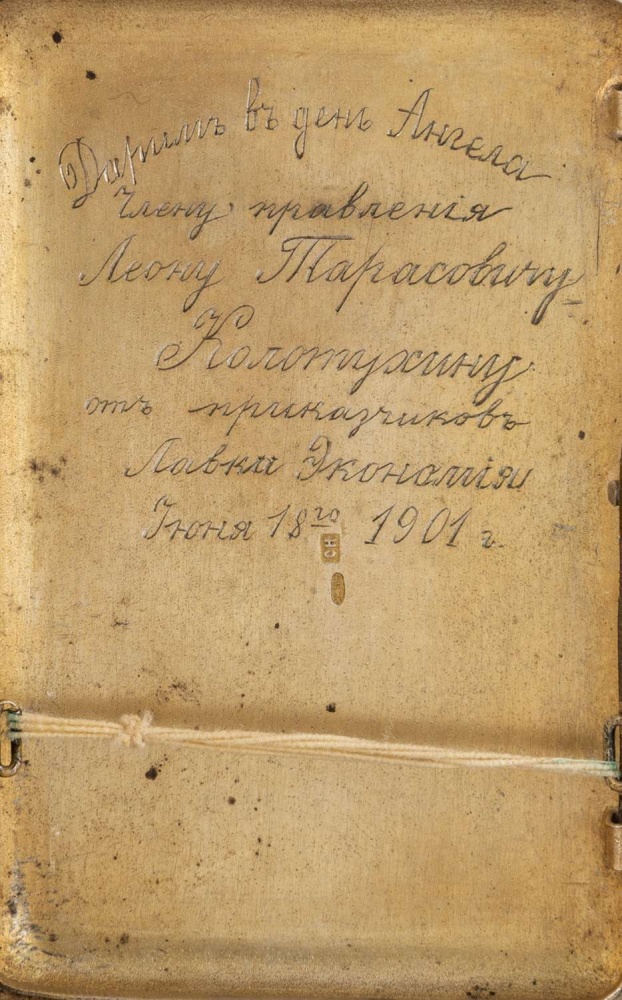 Даримъ въ день Ангела
Члену правленія
Леону Тарасовичу
Колотухину
отъ приказчиковъ
Лавки Экономія
Іюня 18го 1901 г.